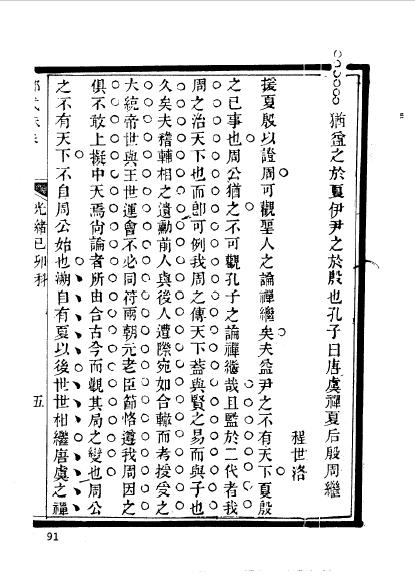 猶益之於夏伊尹之於殷也孔子曰唐虞禪夏后殷周繼
程世洛
援夏殷以證周可觀聖人之論禪繼矣夫益尹之不有天下夏殷
之已事也周公猶之不可觀孔子之論禪繼哉且監於二代者我
周之治天下也而卽可例我周之傳天下蓋與賢之易而與子也
久矣夫稽輔相之遺勳前人與後人遭際宛如合轍而考授受之
大統帝世與王世運會不必同符兩朝元老臣節恪遵我周因之
俱不敢上擬中天焉尚論者所由合古今而觀其局之變也周公
之不有天下不自周公始也溯自有夏以後世世相繼唐虞之禪
光緒己卯科
五
91